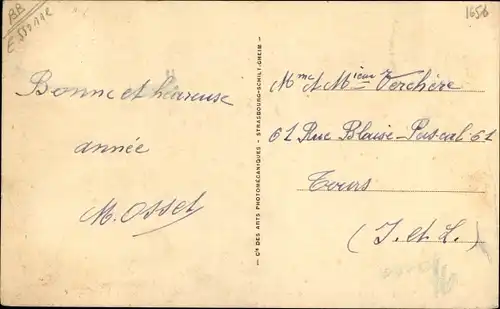 BB
1656
Bonne et heureuse
année
M. Osset
— Cie DES ARTS PHOTOMÉCANIQUES - STRASBOURG-SCHILTIGHEIM —
Mme et Mieur Verchère
61 Rue Blaise-Pascal-61
Tours
(I. et L.)